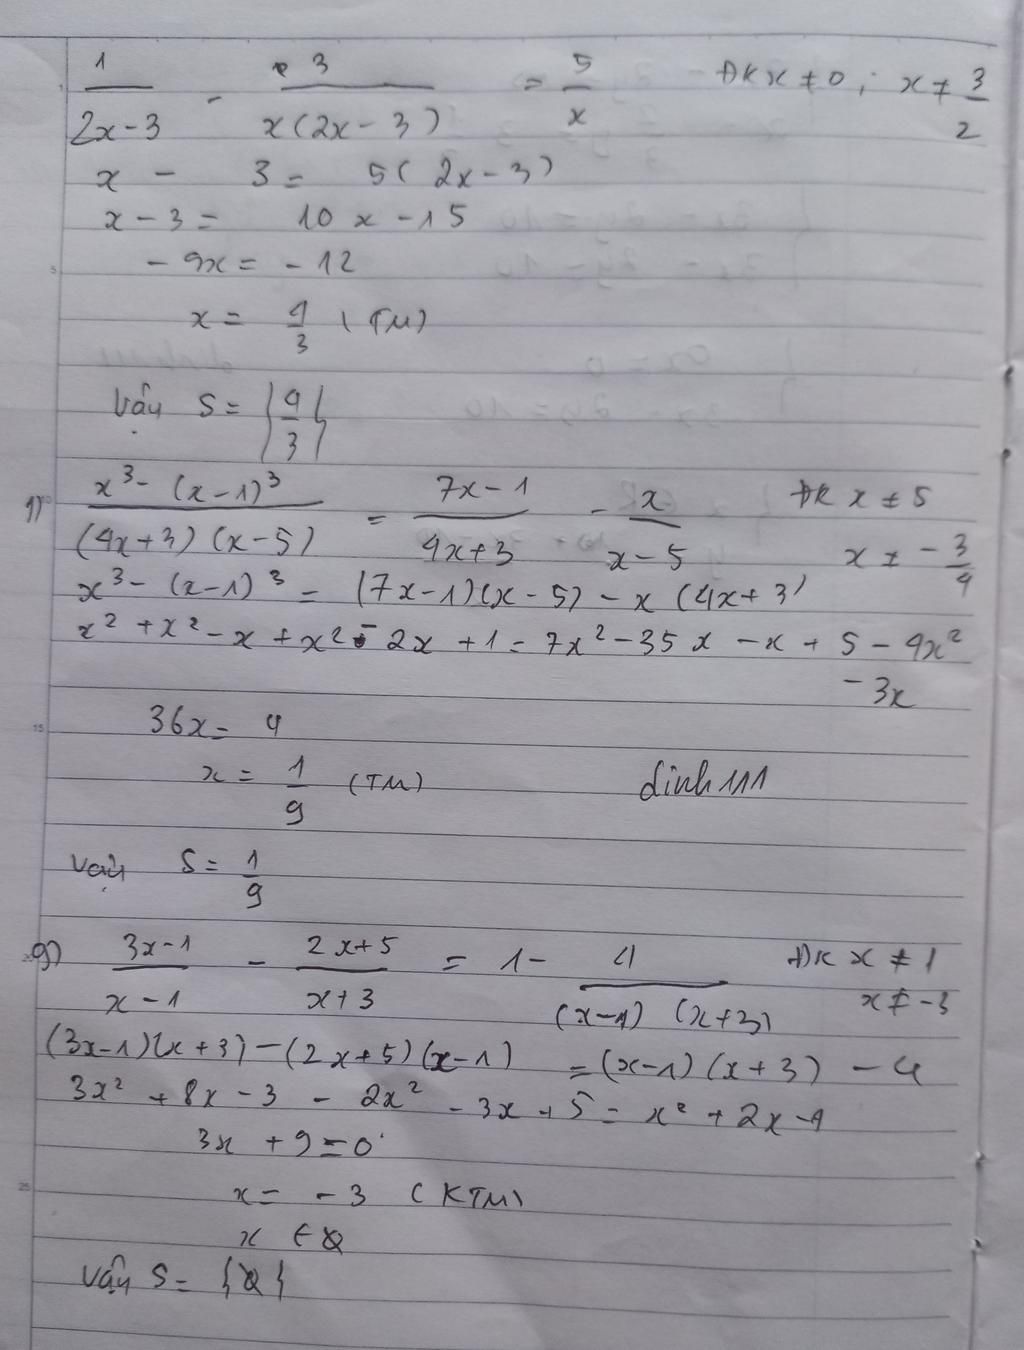 1/(2x-3) - 3/(x(2x-3)) = 5/x ĐK x ≠ 0; x ≠ 3/2
x - 3 = 5(2x-3)
x - 3 = 10x - 15
- 9x = - 12
x = 4/3 (TM)
Vậy S = {4/3}
(x³ - (x-1)³)/((4x+3)(x-5)) = (7x-1)/(4x+3) - x/(x-5) ĐK x ≠ 5
x ≠ -3/4
x³ - (x-1)³ = (7x-1)(x-5) - x(4x+3)
x² + x² - x + x² - 2x + 1 = 7x² - 35x - x + 5 - 4x²
- 3x
36x = 4
x = 1/9 (TM) dinh111
Vậy S = 1/9
g) (3x-1)/(x-1) - (2x+5)/(x+3) = 1 - 4/((x-1)(x+3)) ĐK x ≠ 1
x ≠ -3
(3x-1)(x+3) - (2x+5)(x-1) = (x-1)(x+3) - 4
3x² + 8x - 3 - 2x² - 3x + 5 = x² + 2x - 7
3x + 9 = 0
x = - 3 (KTM)
x ∈ Ø
Vậy S = {Ø}